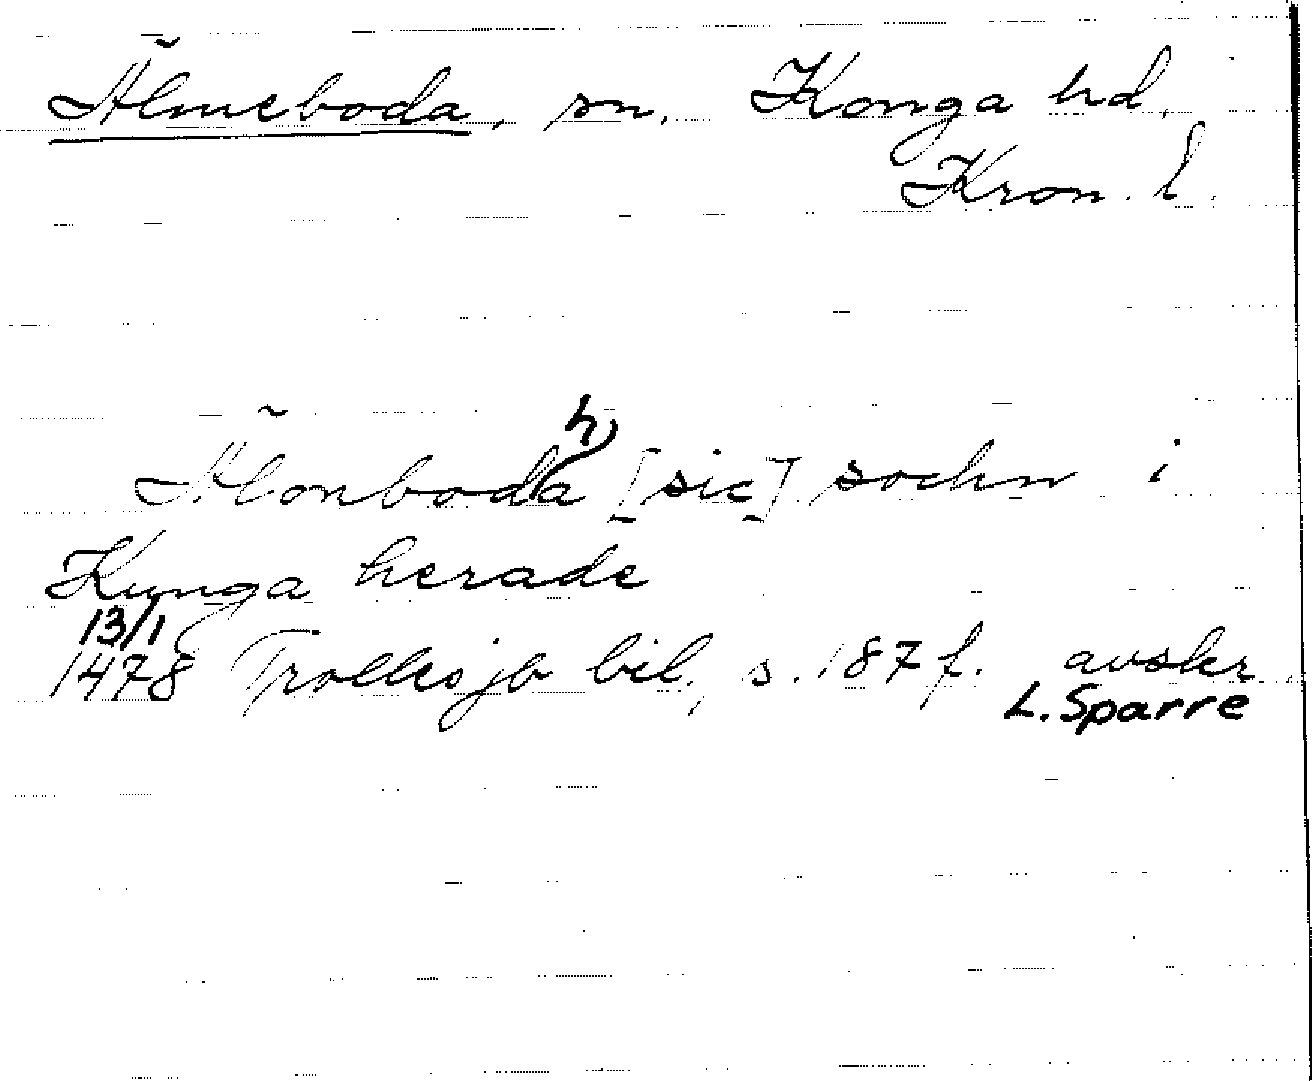 Älmeboda, sn, Konga hd,
Kron. l.
Älonbodha [sic] sochn i
Kunga herade
13/1
1478 Trollesjö bil., s. 187 f. avskr
L. Sparre